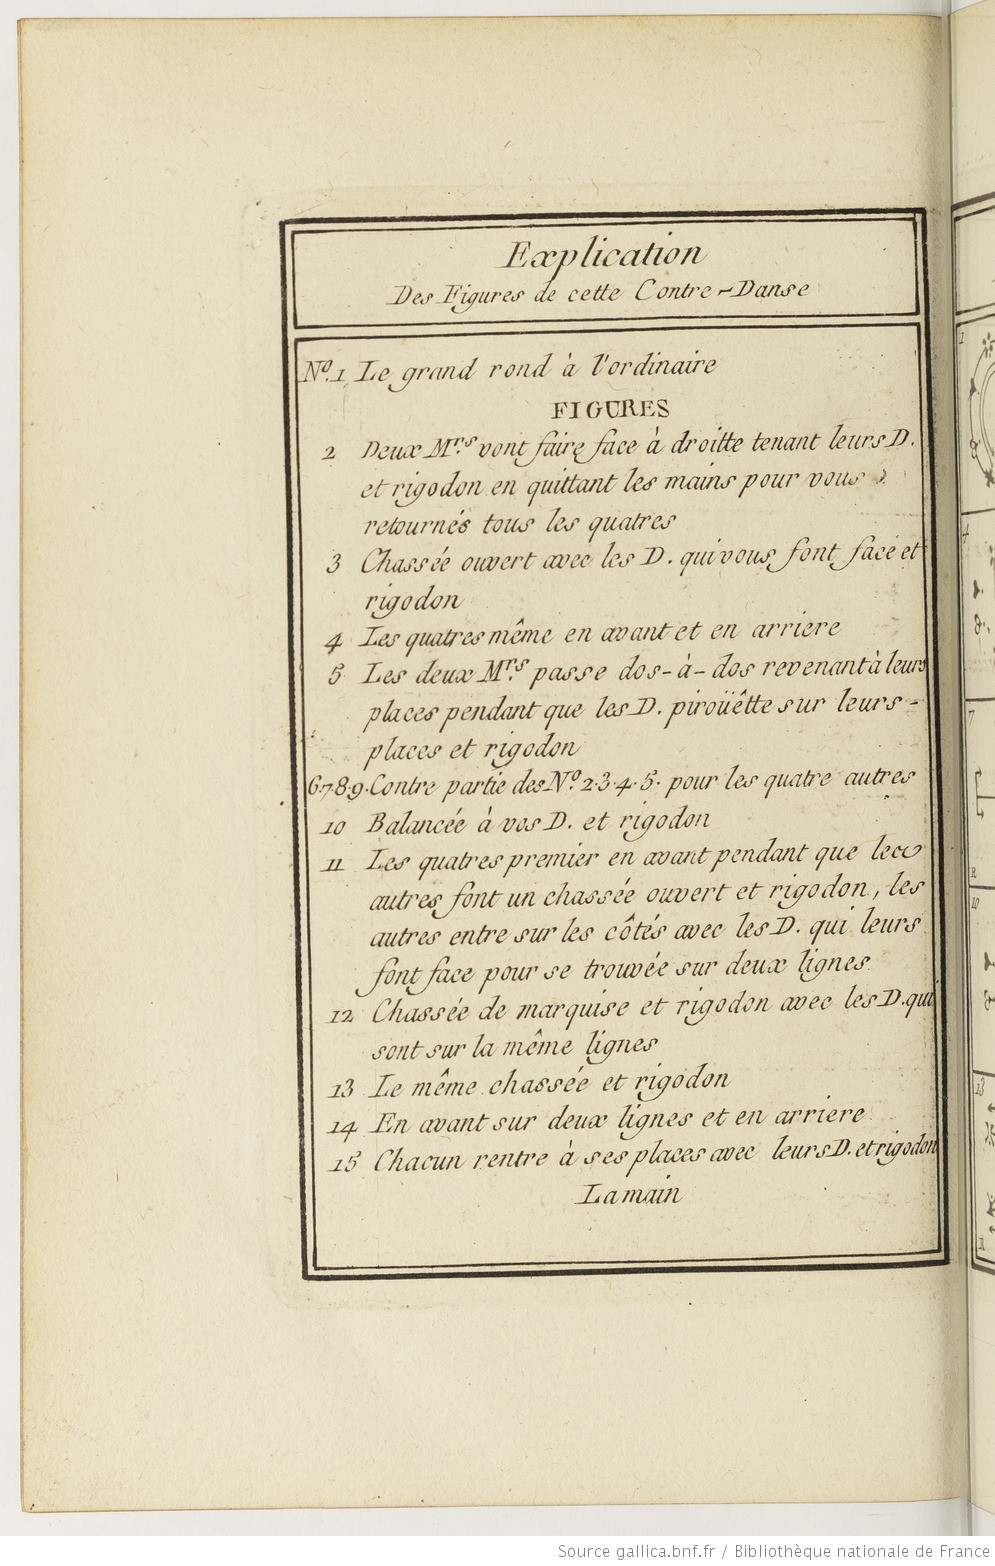 Explication
Des Figures de cette Contre-Danse
No. 1 Le grand rond à l'ordinaire
FIGURES
2 Deux Mrs. vont faire face à droitte tenant leurs D.
et rigodon en quittant les mains pour vous
retournés tous les quatres
3 Chassée ouvert avec les D. qui vous font face et
rigodon
4 Les quatres même en avant et en arriere
5 Les deux Mrs. passe dos-à-dos revenant à leurs
places pendant que les D. piroüêtte sur leurs-
places et rigodon
6.7.8.9. Contre partie des No. 2.3.4.5. pour les quatre autres
10 Balancée à vos D. et rigodon
11 Les quatres premier en avant pendant que les
autres font un chassée ouvert et rigodon, les
autres entre sur les côtés avec les D. qui leurs
font face pour se trouvée sur deux lignes
12 Chassée de marquise et rigodon avec les D. qui
sont sur la même lignes
13 Le même chassée et rigodon
14 En avant sur deux lignes et en arriere
15 Chacun rentre à ses places avec leurs D. et rigodon
La main
1
4
7
10
13
Source gallica.bnf.fr / Bibliothèque nationale de France